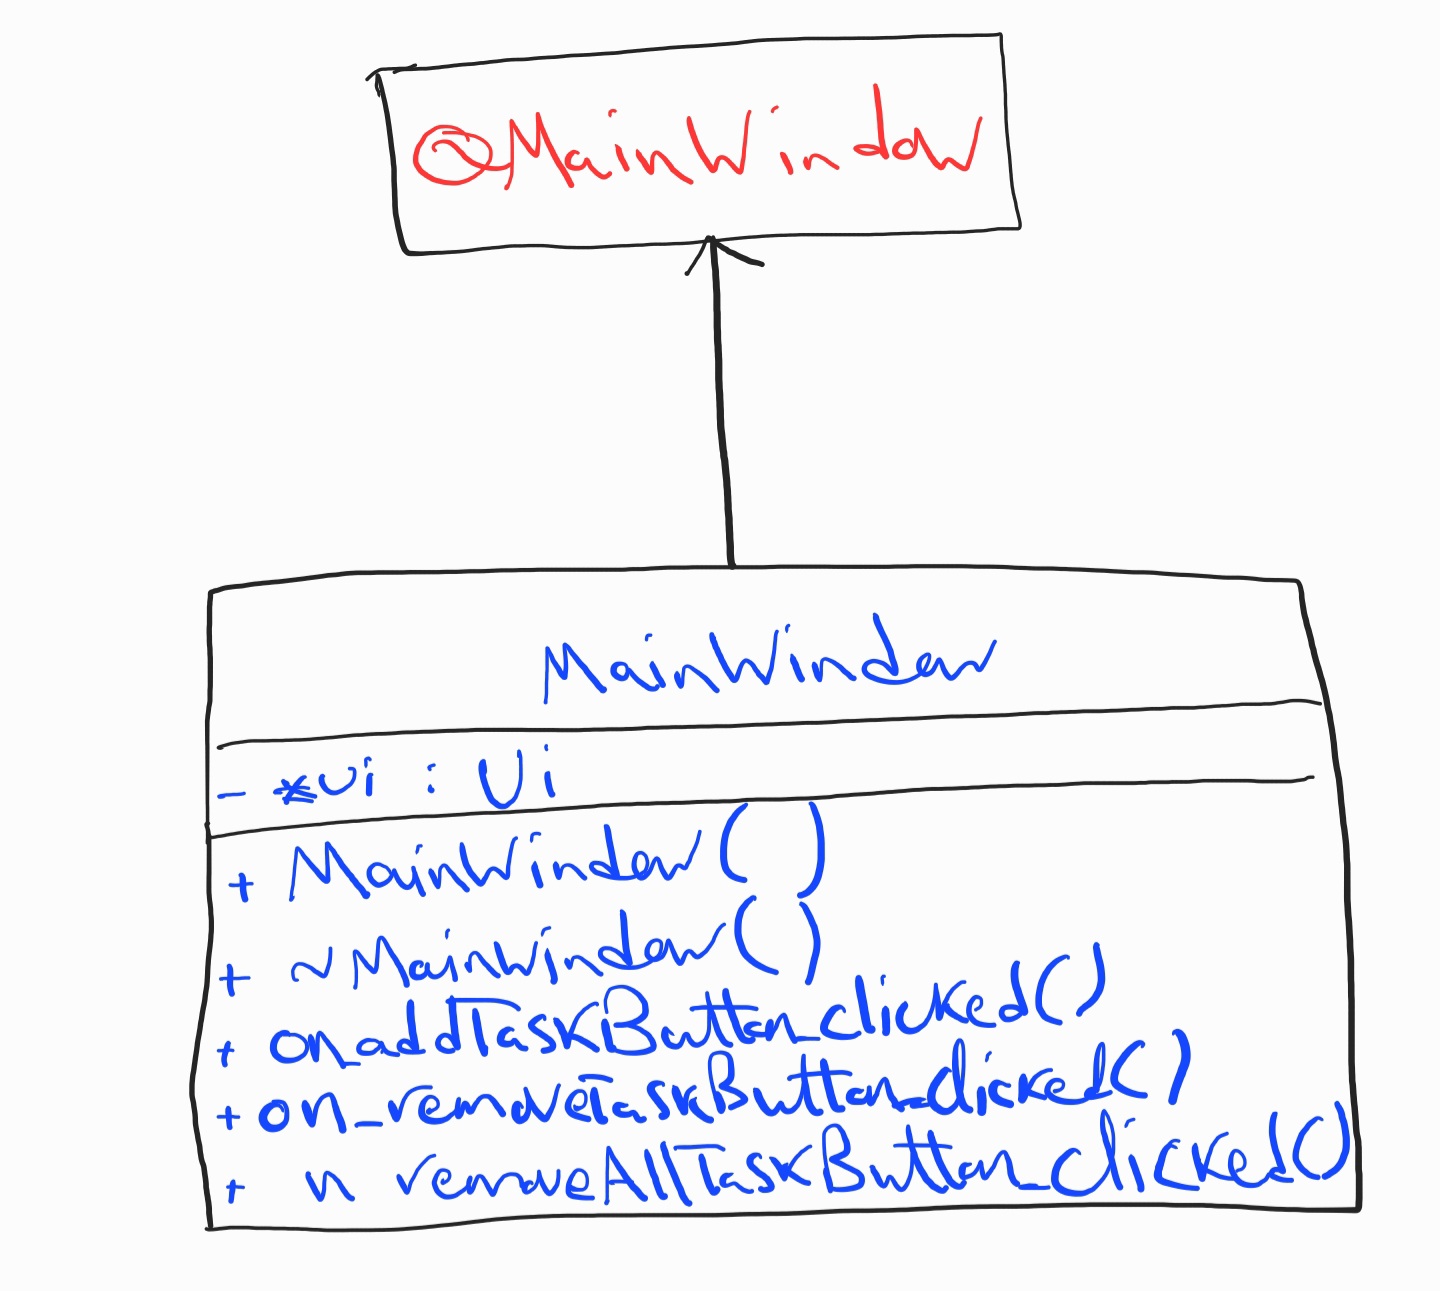 QMainWindow
MainWindow
- *ui : Ui
+ MainWindow()
+ ~MainWindow()
+ on_addTaskButton_clicked()
+ on_removeTaskButton_clicked()
+ n removeAllTaskButton_clicked()